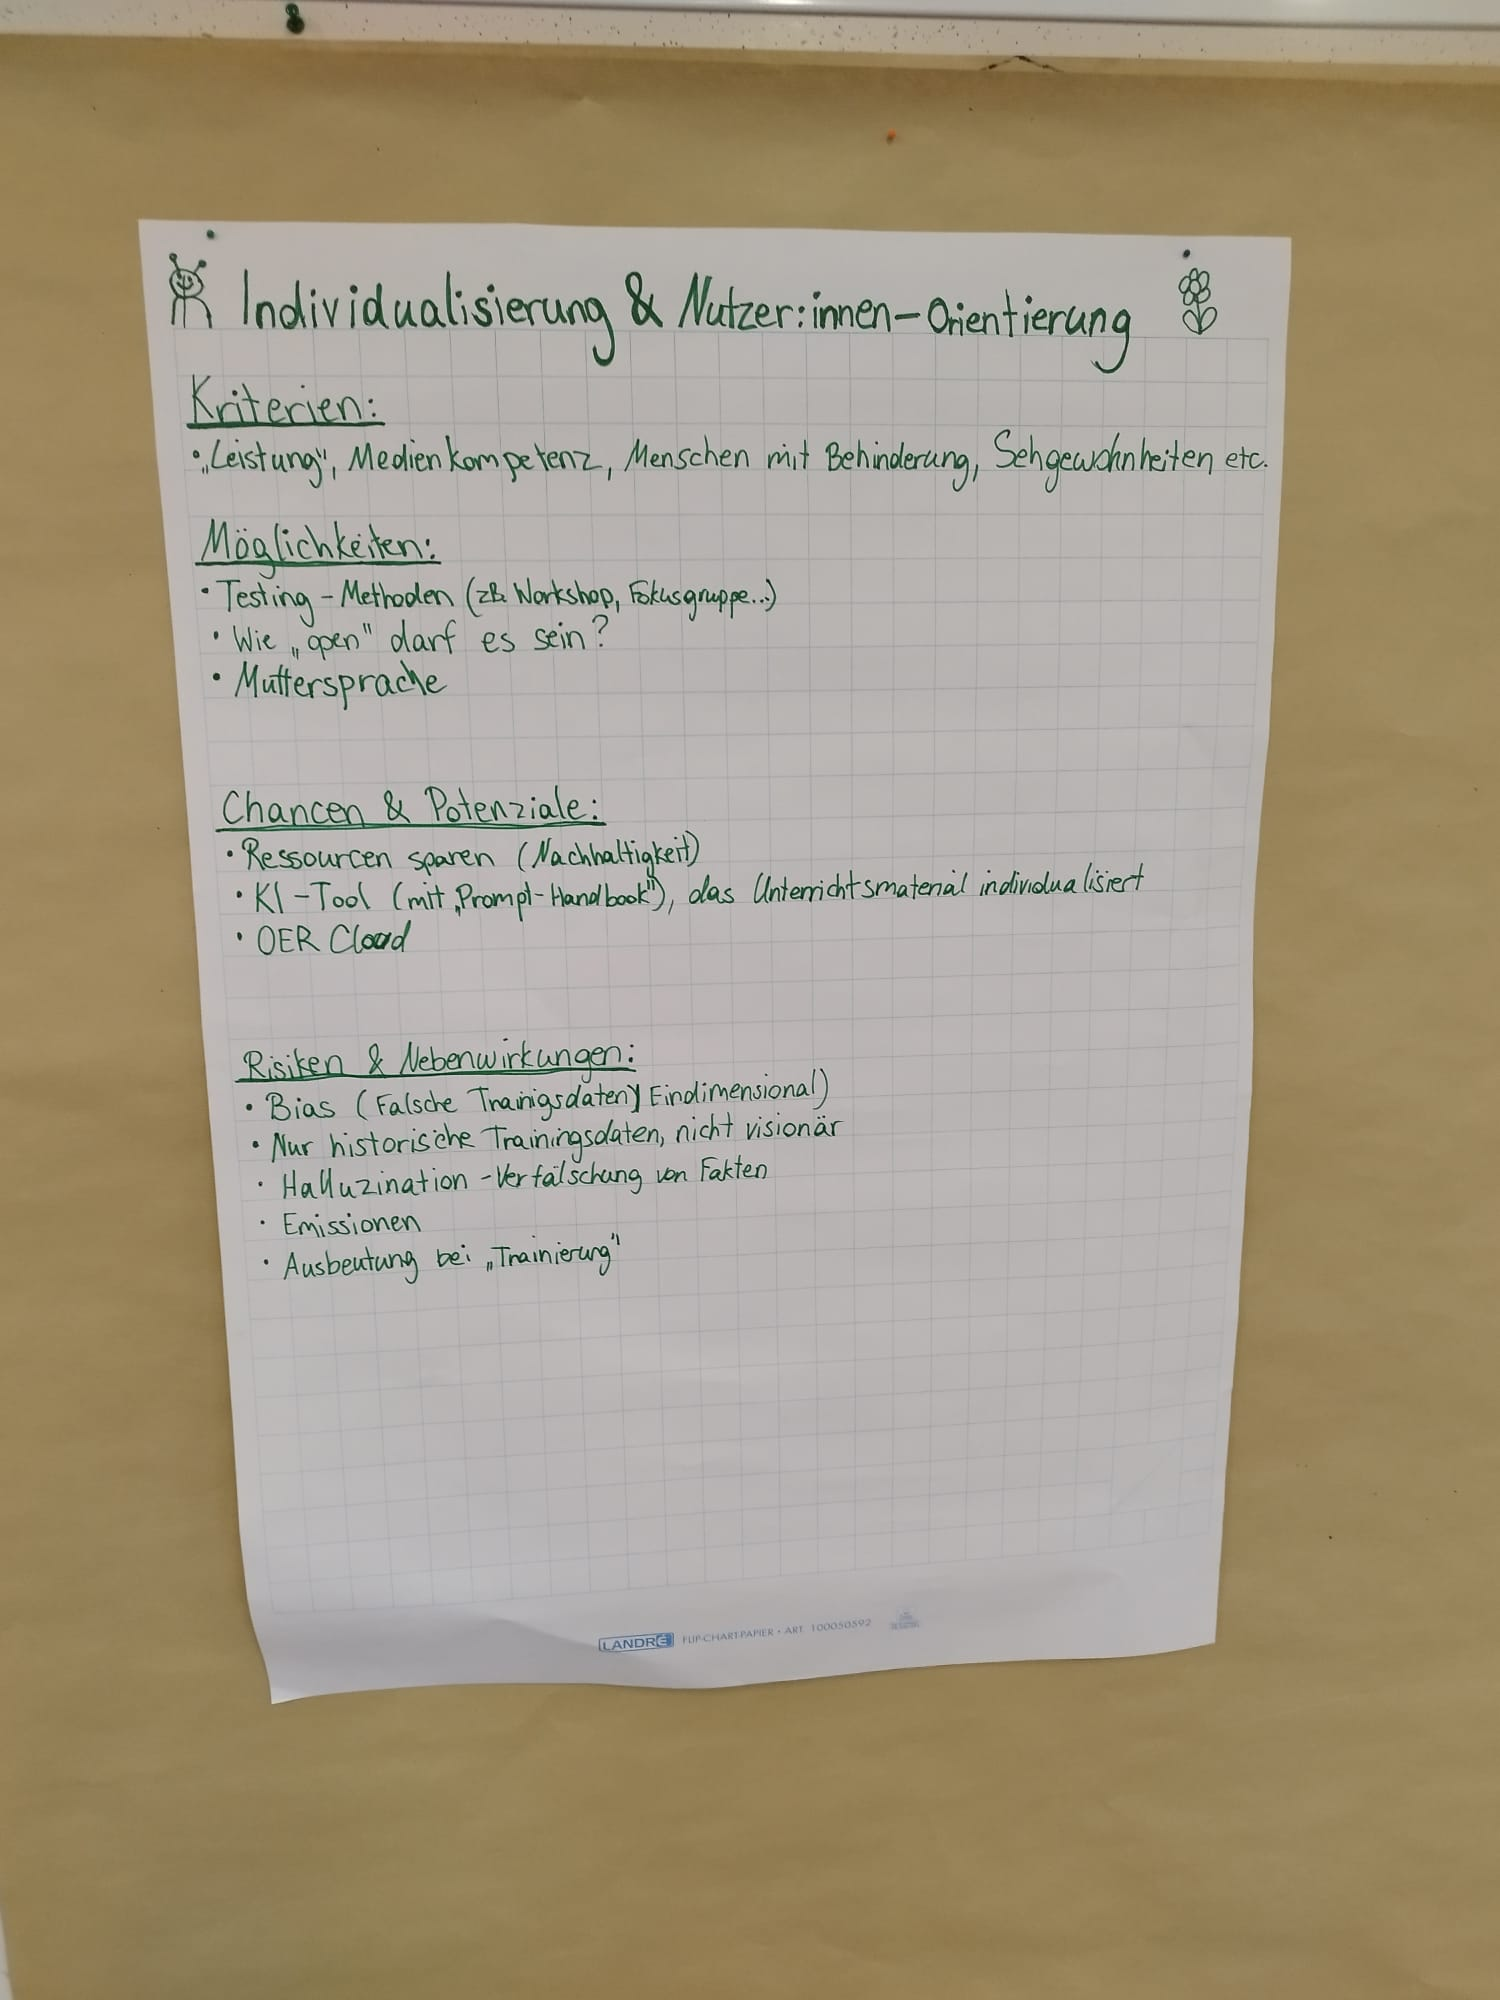 Individualisierung & Nutzer:innen-Orientierung
Kriterien:
• „Leistung", Medienkompetenz, Menschen mit Behinderung, Sehgewohnheiten etc.
Möglichkeiten:
• Testing-Methoden (zB. Workshop, Fokusgruppe...)
• Wie „open" darf es sein?
• Muttersprache
Chancen & Potenziale:
• Ressourcen sparen (Nachhaltigkeit)
• KI-Tool (mit „Prompt-Handbook"), das Unterrichtsmaterial individualisiert
• OER Cloud
Risiken & Nebenwirkungen:
• Bias (Falsche Trainigsdaten) Eindimensional)
• Nur historische Trainingsdaten, nicht visionär
• Halluzination - Verfälschung von Fakten
• Emissionen
• Ausbeutung bei „Trainierung"
LANDRÉ FLIP-CHART-PAPIER • ART. 100050592